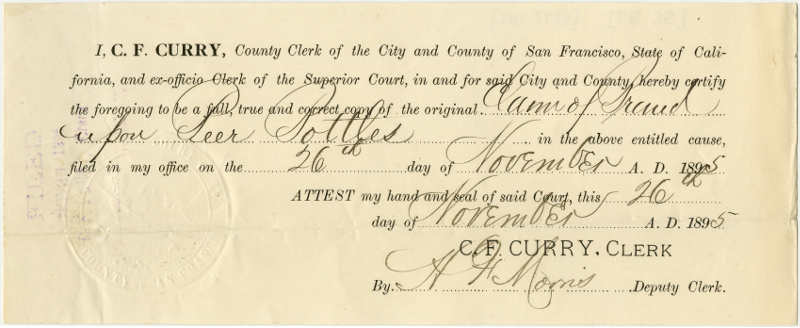 I, C. F. CURRY, County Clerk of the City and County of San Francisco, State of Cali-
fornia, and ex-officio Clerk of the Superior Court, in and for said City and County, hereby certify
the foregoing to be a full, true and correct copy of the original Claim of Brand
upon Beer Bottles in the above entitled cause,
filed in my office on the 26th day of November A. D. 1895
ATTEST my hand and seal of said Court, this 26th
day of November A. D. 1895
C. F. CURRY, CLERK
By A F Morris Deputy Clerk.
FILED